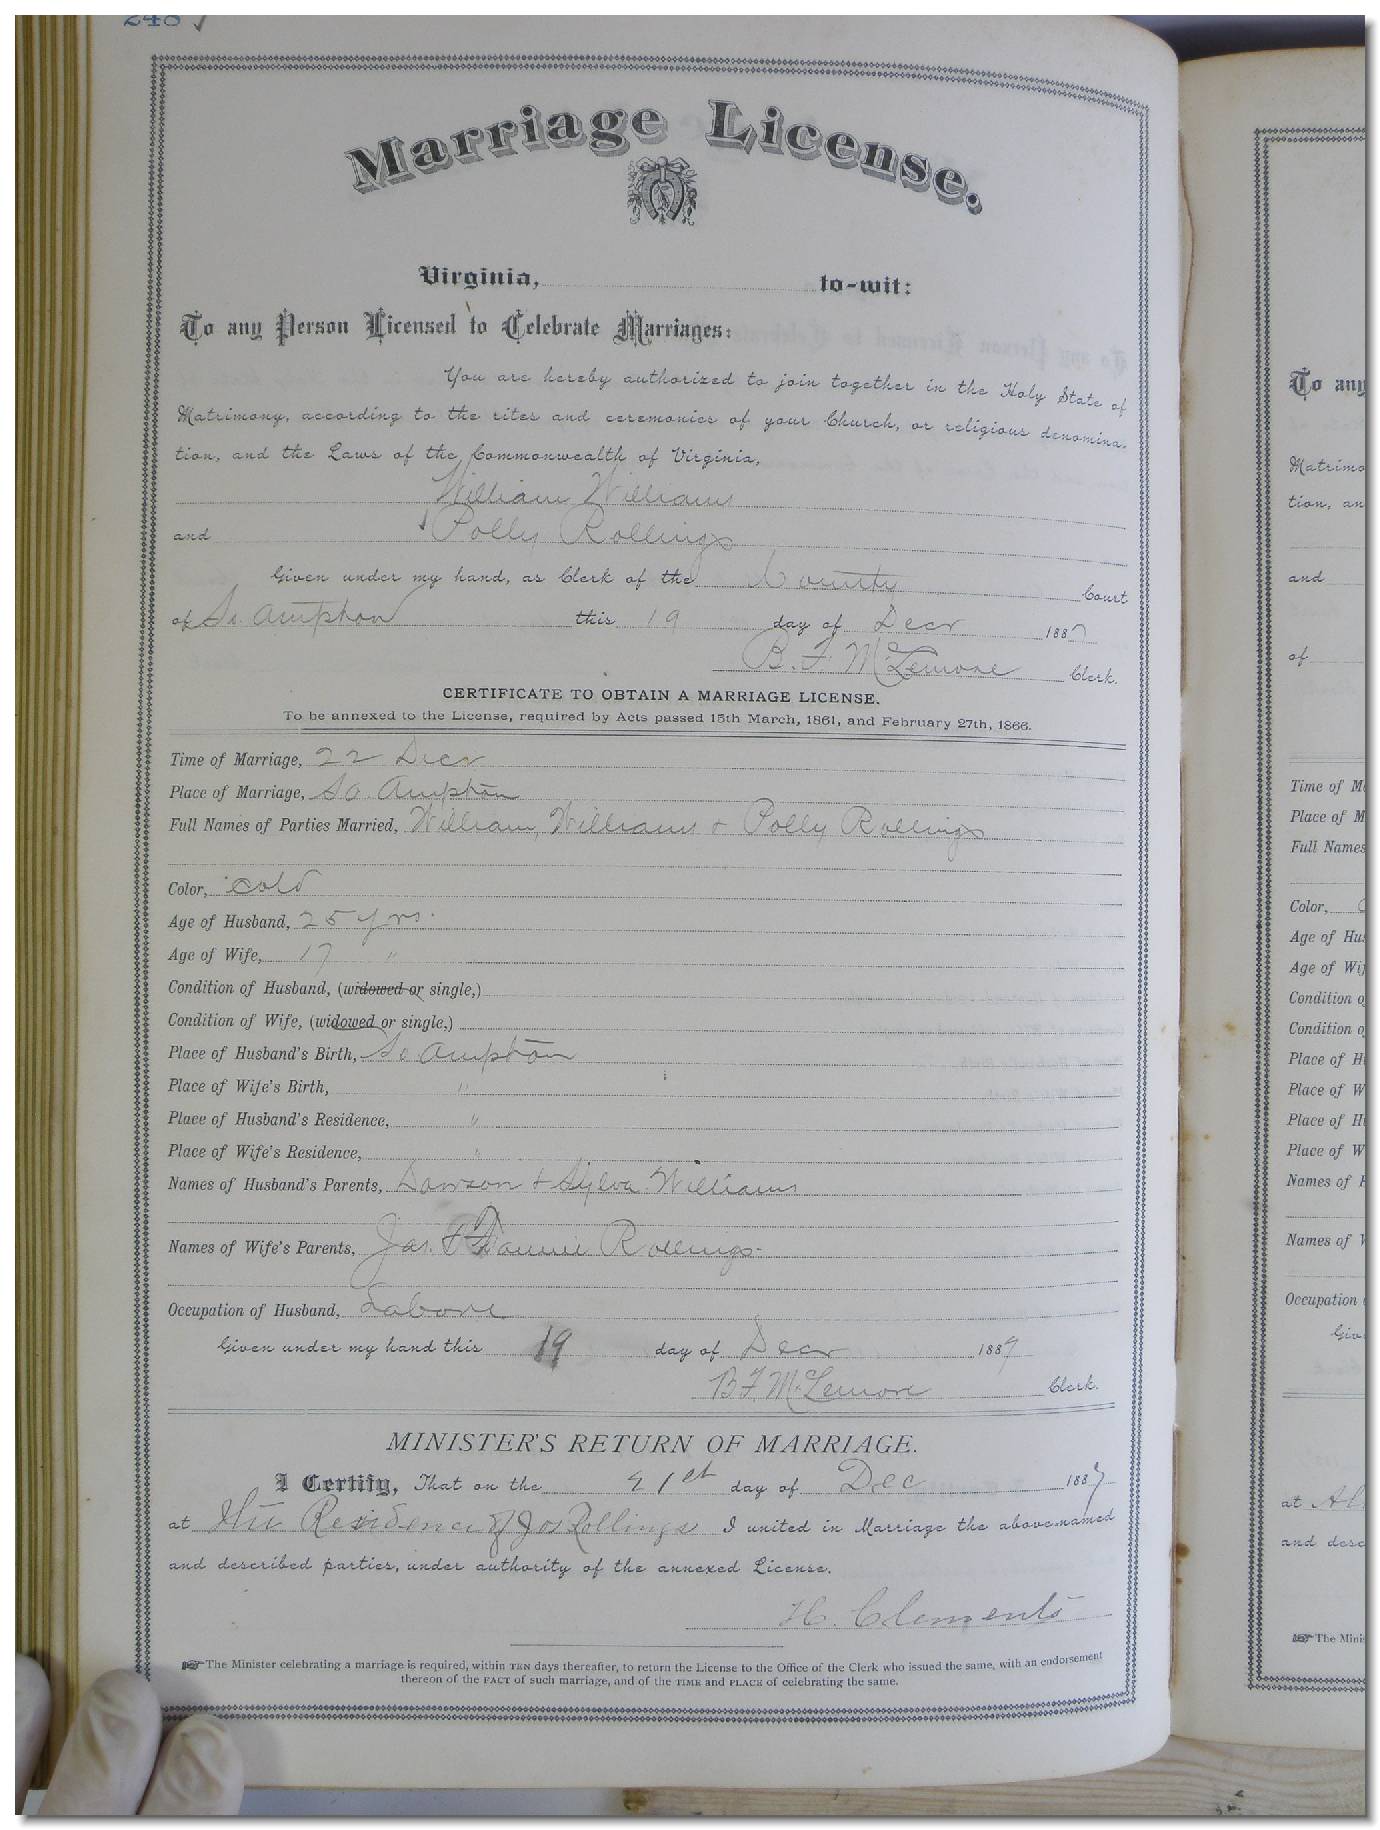 248
Marriage License.
Virginia, to-wit:
To any Person Licensed to Celebrate Marriages:
You are hereby authorized to join together in the Holy State of
Matrimony, according to the rites and ceremonies of your Church, or religious denomina-
tion, and the Laws of the Commonwealth of Virginia,
William Williams
and Polly Rollings
Given under my hand, as Clerk of the County Court
of So. Ampton this 19 day of Decr 1887
B. F. McLemore Clerk.
CERTIFICATE TO OBTAIN A MARRIAGE LICENSE.
To be annexed to the License, required by Acts passed 15th March, 1861, and February 27th, 1866.
Time of Marriage, 22 Decr
Place of Marriage, So. Ampton
Full Names of Parties Married, William Williams + Polly Rollings
Color, cold
Age of Husband, 25 yrs.
Age of Wife, 17 "
Condition of Husband, (widowed or single,)
Condition of Wife, (widowed or single,)
Place of Husband's Birth, So Ampton
Place of Wife's Birth, "
Place of Husband's Residence, "
Place of Wife's Residence, "
Names of Husband's Parents, Dawson + Sylva Williams
Names of Wife's Parents, Jas. & Fannie Rollings
Occupation of Husband, Labore
Given under my hand this 19 day of Decr 1887
B F McLemore Clerk.
MINISTER'S RETURN OF MARRIAGE.
I Certify, That on the 21st day of Dec 1887
at the Residence of Jas Rollings I united in Marriage the above-named
and described parties, under authority of the annexed License.
H. Clements
The Minister celebrating a marriage is required, within TEN days thereafter, to return the License to the Office of the Clerk who issued the same, with an endorsement
thereon of the FACT of such marriage, and of the TIME and PLACE of celebrating the same.
To any
Matrimo
tion, an
and
of
Time of M
Place of M
Full Names
Color,
Age of Hus
Age of Wif
Condition o
Condition o
Place of H
Place of W
Place of H
Place of W
Names of H
Names of W
Occupation
Giv
at
and desc
The Mini